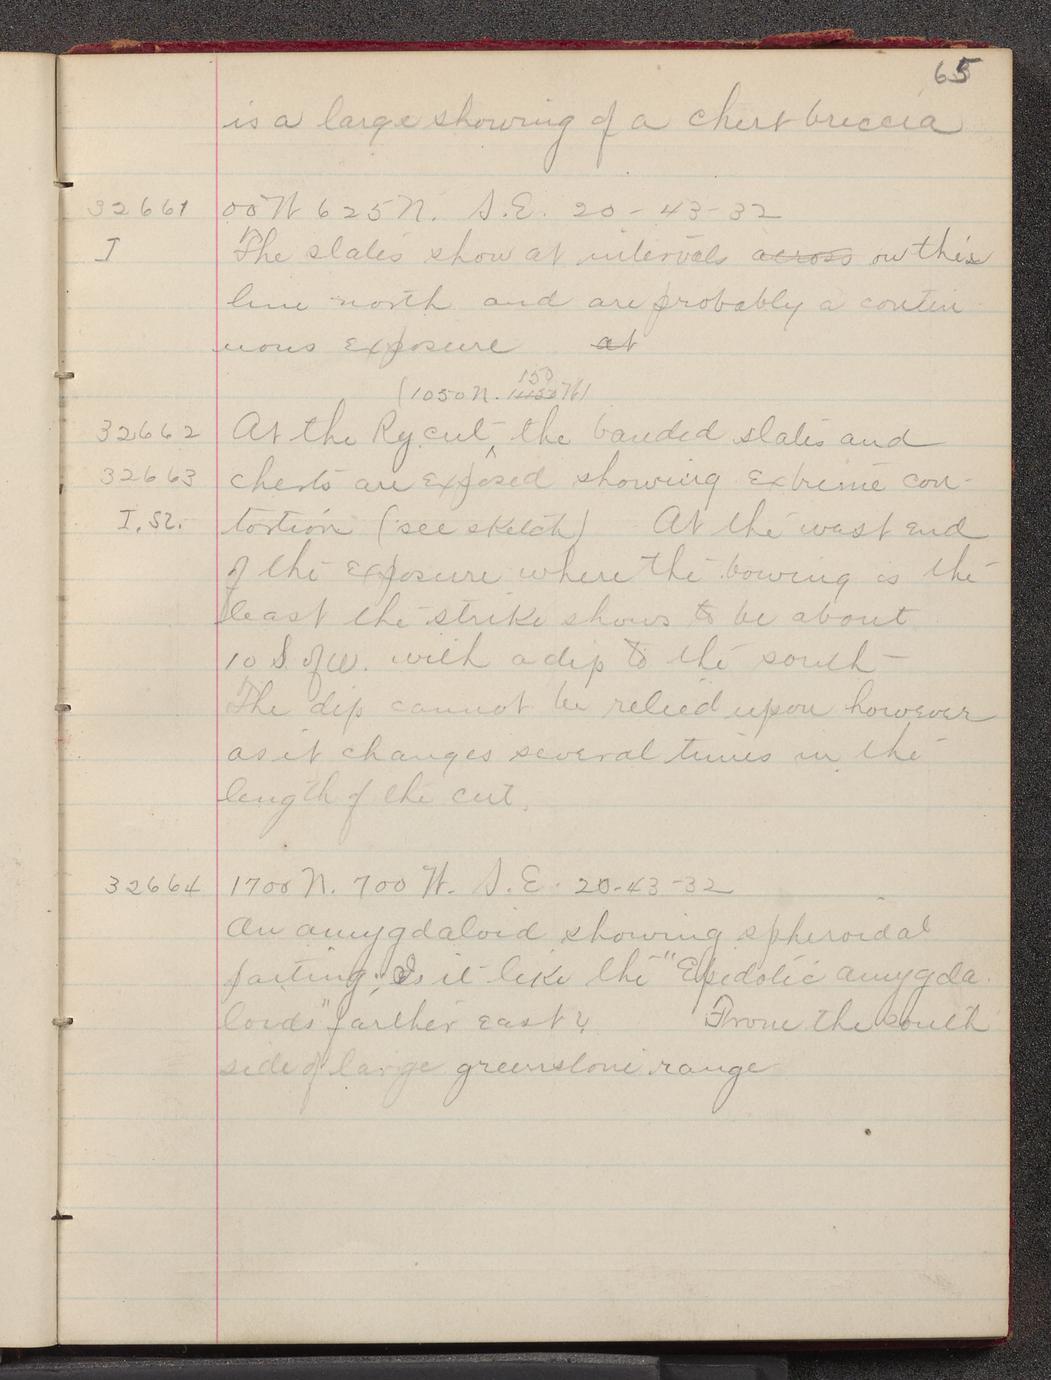 65
is a large showing of a chert breccia
32661 00 W 625 N. S.E. 20-43-32
I The slates show at intervals across on this
line north and are probably a contin
uous exposure at
(1050 N. 150 W)
32662 At the Ry. cut, ^ the banded slates and
32663 cherts are exposed showing extreme con-
I. Sl. tortion (see sketch) At the west end
of the exposure where the bowing is the
least the strike shows to be about
10 S. of W. with a dip to the south -
The dip cannot be relied upon however
as it changes several times in the
length of the cut.
32664 1700 N. 700 W. S.E. 20-43-32
An amygdaloid showing spheroidal
parting; Is it like the "Epidotic amygda
loids" farther east? From the south
side of large greenstone range